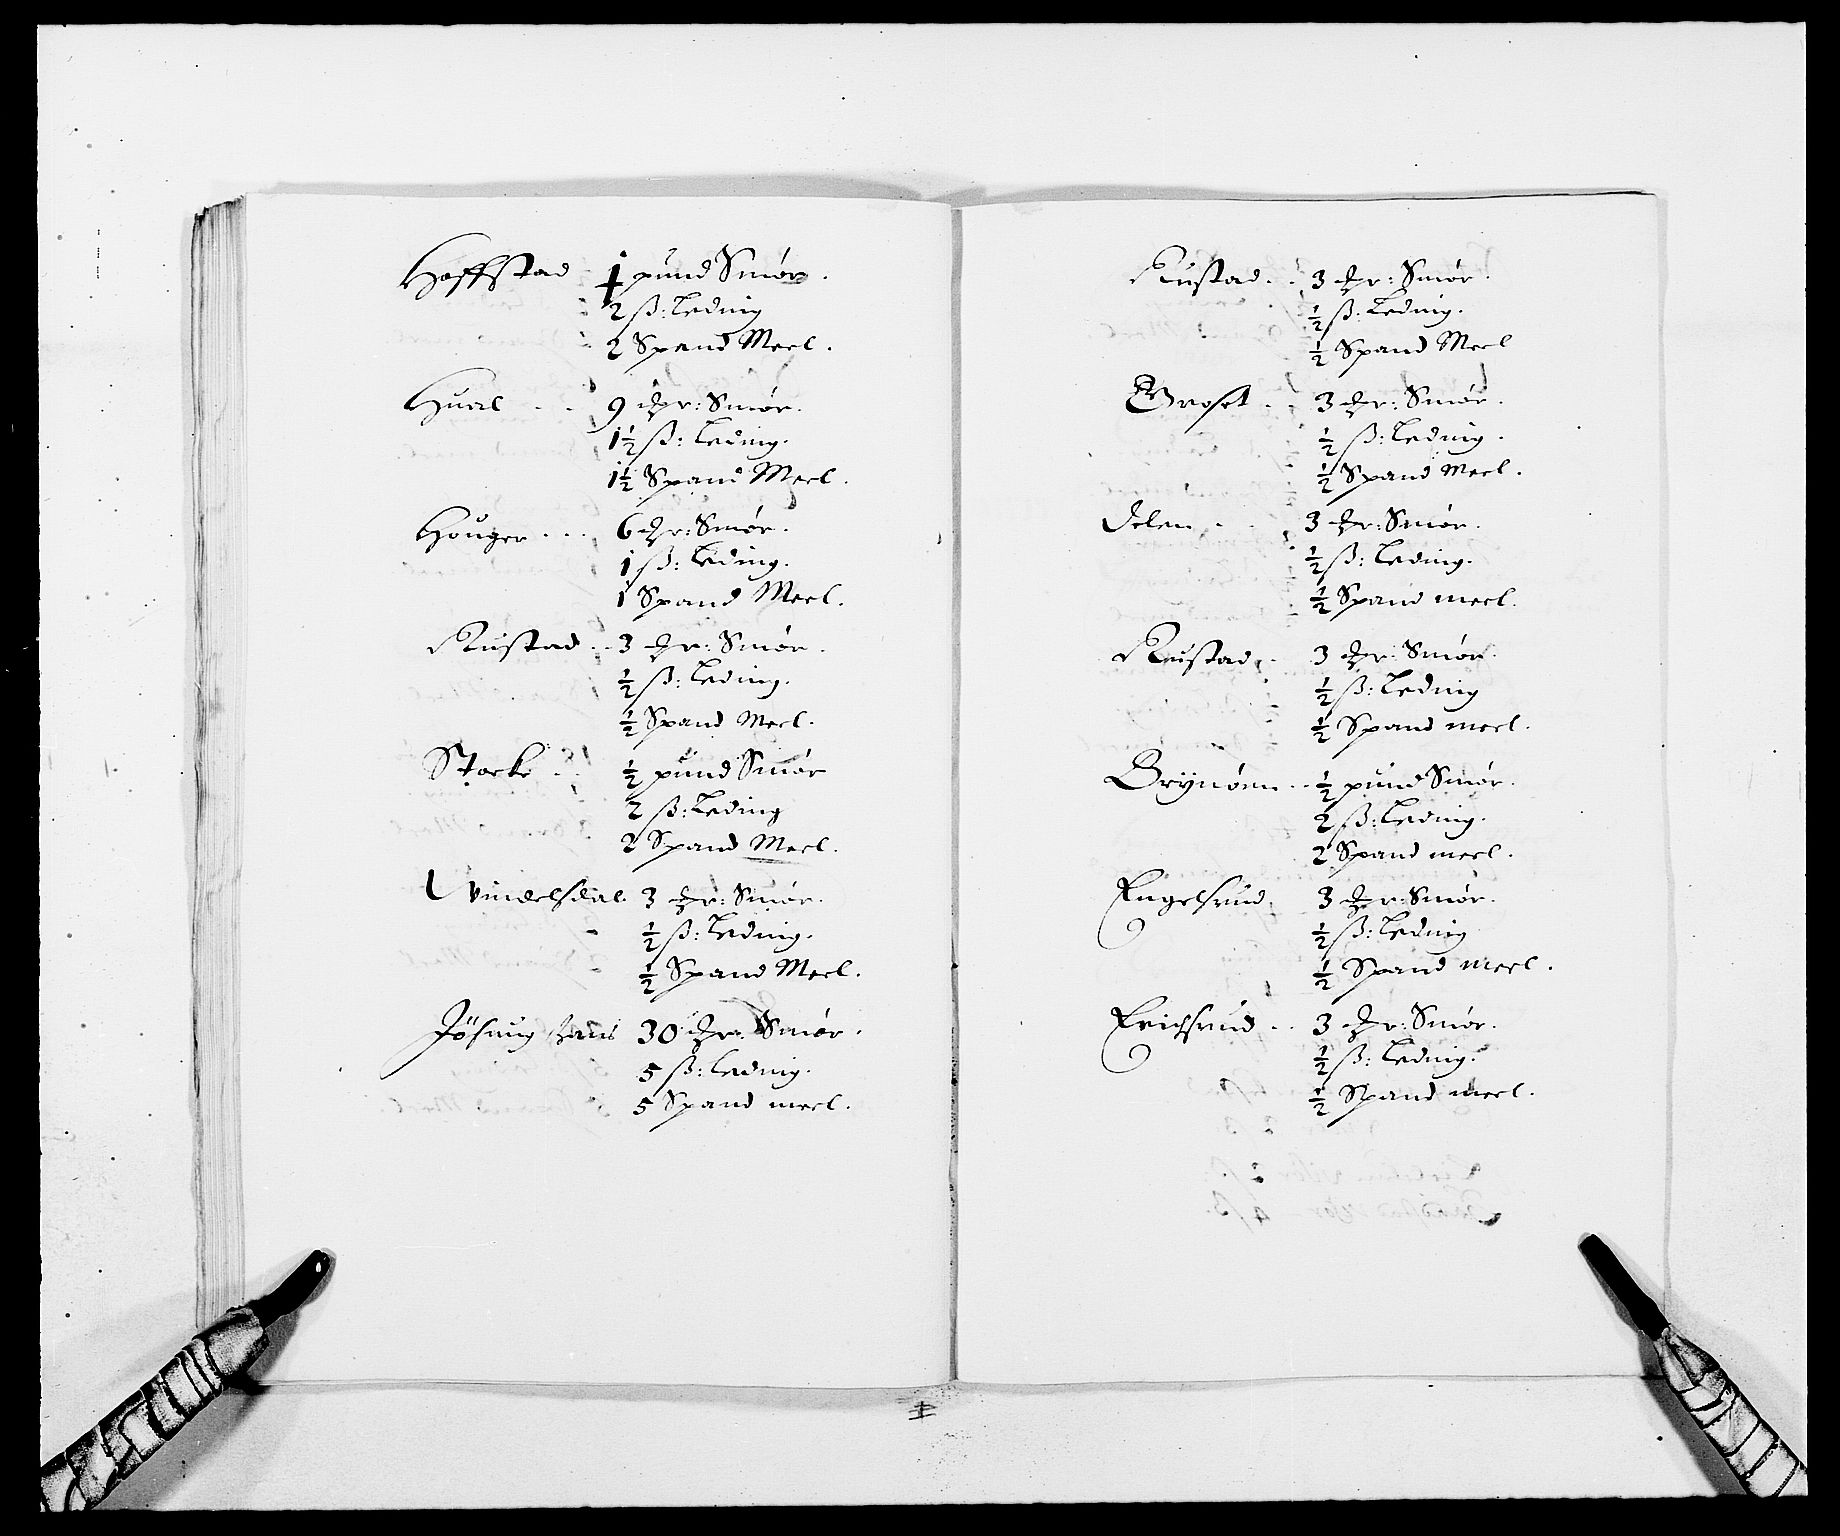 Hoffstad 1 pund Smør.
2 ß: Leding
2 Spand Meel.
Hual .. 9 mr: Smør.
1½ ß: Leding.
1½ Spand Meel.
Houger ... 6 mr: Smør.
1 ß: Leding.
1 Spand Meel.
Rustad .. 3 mr: Smør.
½ ß: Leding.
½ Spand Meel.
Stocke .. ½ pund Smør
2 ß: Leding
2 Spand Meel.
Vindelsdal. 3 mr: Smør.
½ ß: Leding.
½ Spand Meel.
30 mr: Smør.
5 ß: Leding.
5 Spand meel.
Rustad .. 3 mr: Smør.
½ ß: Leding.
½ Spand Meel
Groset .. 3 mr: Smør.
½ ß: Leding.
½ Spand Meel.
3 mr: Smør.
½ ß: Leding.
½ Spand meel.
Rustad . 3 mr: Smør.
½ ß: Leding
½ Spand meel.
Grynøen .. ½ pund Smør.
2 ß: Leding.
2 Spand meel.
Engelsrud. 3 mr: Smør.
½ ß: Leding
½ Spand meel.
Erichsrud .. 3 mr: Smør.
½ ß: Leding.
½ Spand meel.